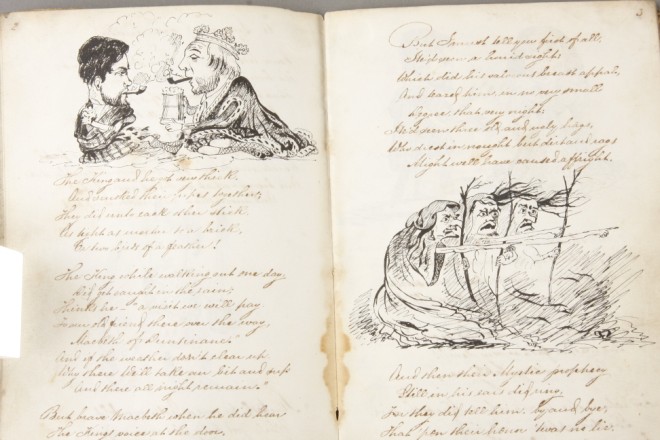 2
The King and he got so thick,
And smoked their pipes together,
They did unto each other stick
As tight as mortar to a brick,
Or two birds of a feather!
The King while walking out one day,
Did get caught in the rain;
Thinks he "a visit we will pay
To our old friend there over the way,
Macbeth of
And if the weather don't clear up
Why there We'll take our bit and sup
And there all night remain."
But brave Macbeth when he did hear
The King's voice at the door,
3
But I must tell you first of all,
He'd seen a horrid sight,
Which did his valorous breast appal,
And scared him in no very small
Degree that very night.
He'd seen three old and ugly hags,
Who drest in nought but dirt and rags
Might well have caused affright.
And then their Mystic prophecy
Still in his ears did ring,
For they did tell him, by and bye,
That 'pon their honor 'twas no lie,